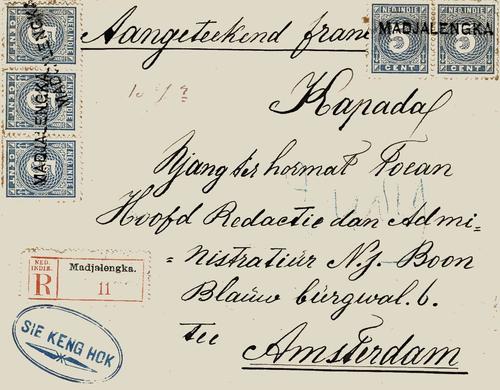 NED. INDIE
MADJALENGKA
CENT
CENT
Aangeteekend fran
MADJALENGKA
MADJALENGKA
Kapada
Njang ter hormat Toean
Hoofd Redactie dan Admi=
=nistratiur N.J. Boon
Blauw burgwal. 6.
te
Amsterdam
NED. INDIE.
R
Madjalengka.
11
SIE KENG HOK